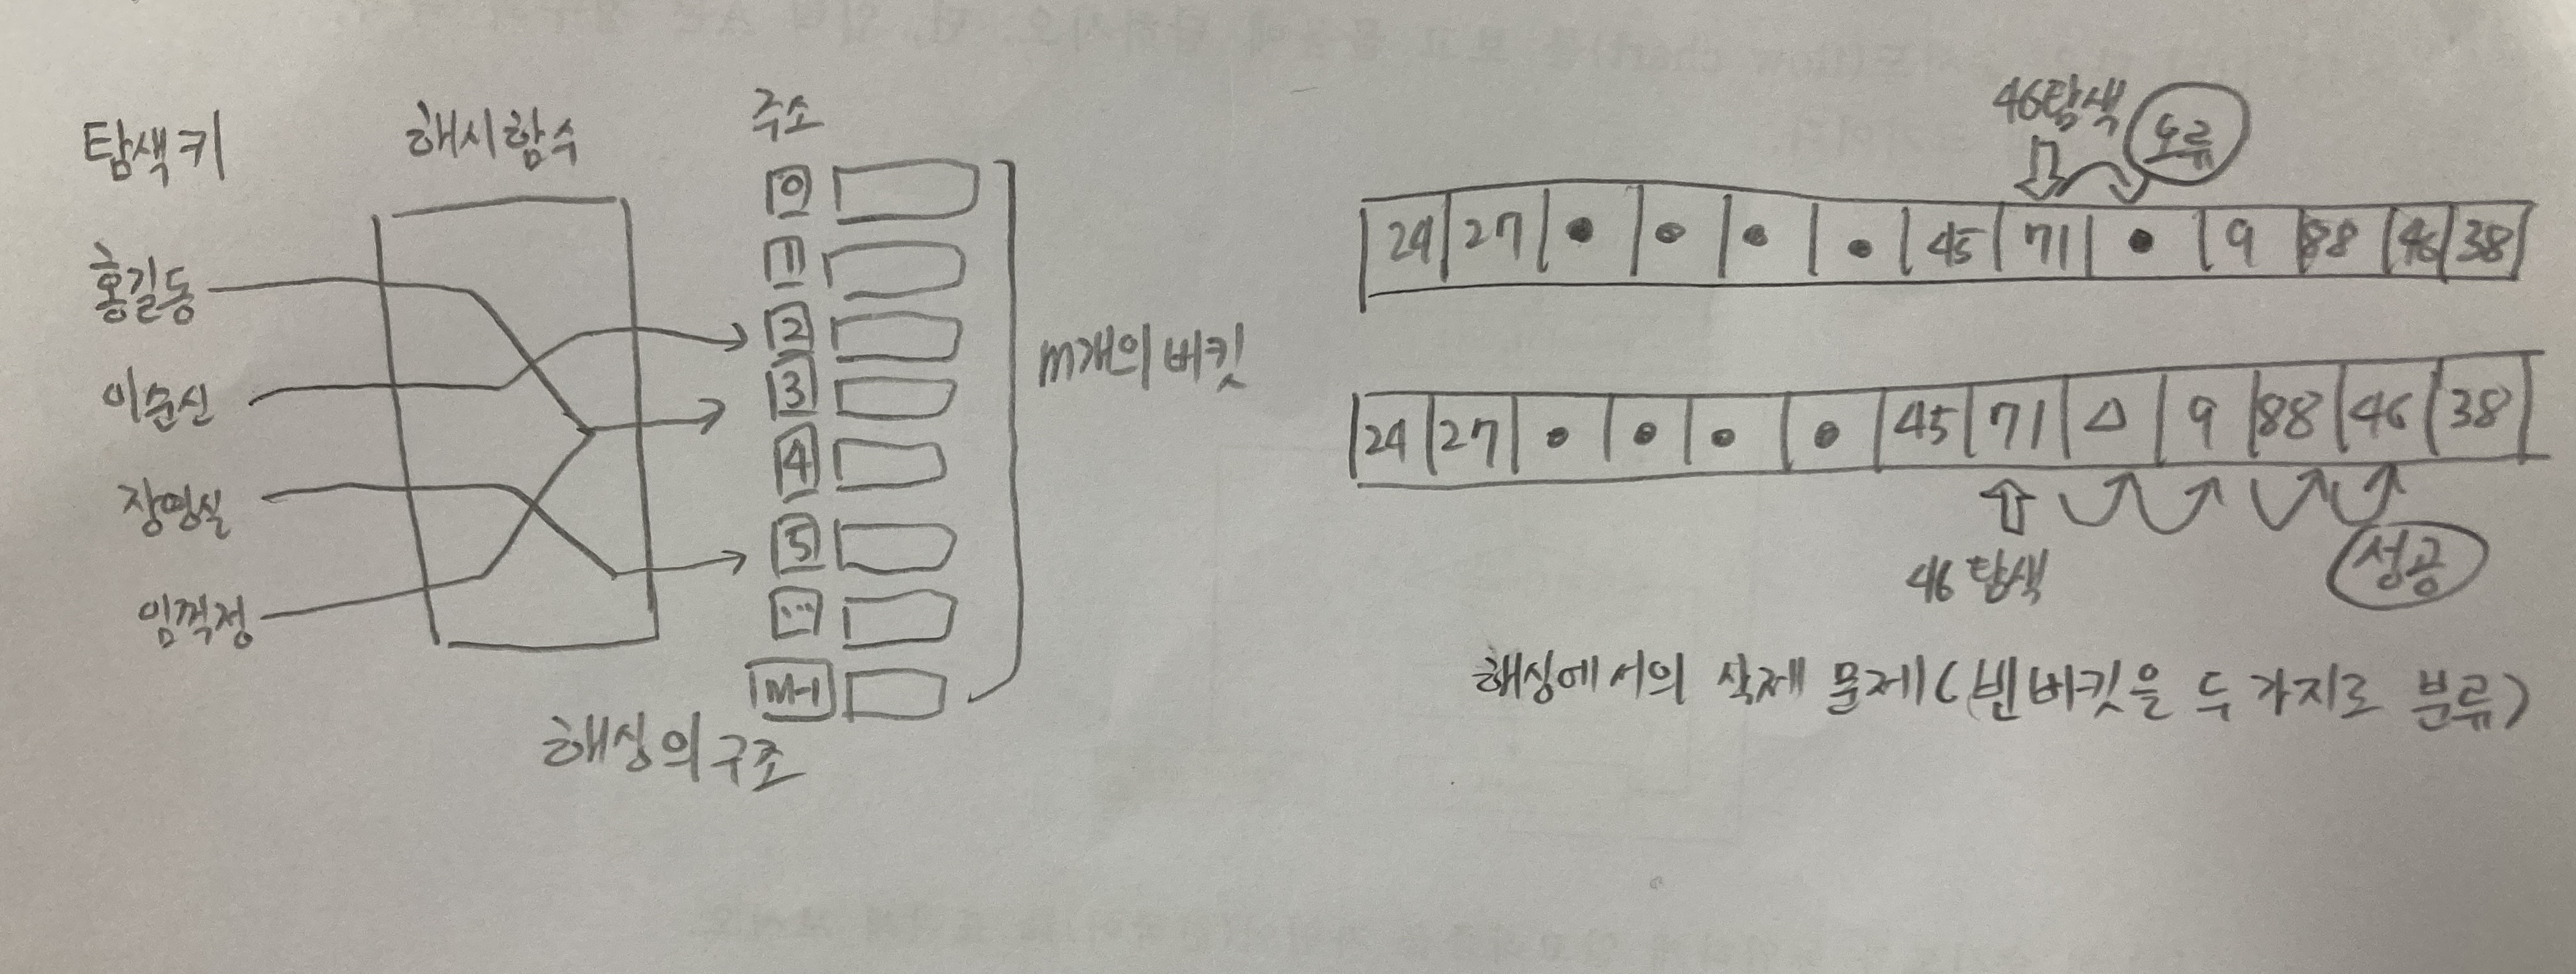 탐색키
해시함수
주소
홍길동
이순신
장영실
임꺽정
0
1
2
3
4
5
...
M-1
m개의 버킷
해싱의 구조
46탐색
오류
24 27 • • • • 45 71 • 9 88 46 38
24 27 • • • • 45 71 △ 9 88 46 38
46 탐색
성공
해싱에서의 삭제 문제(빈버킷을 두 가지로 분류)